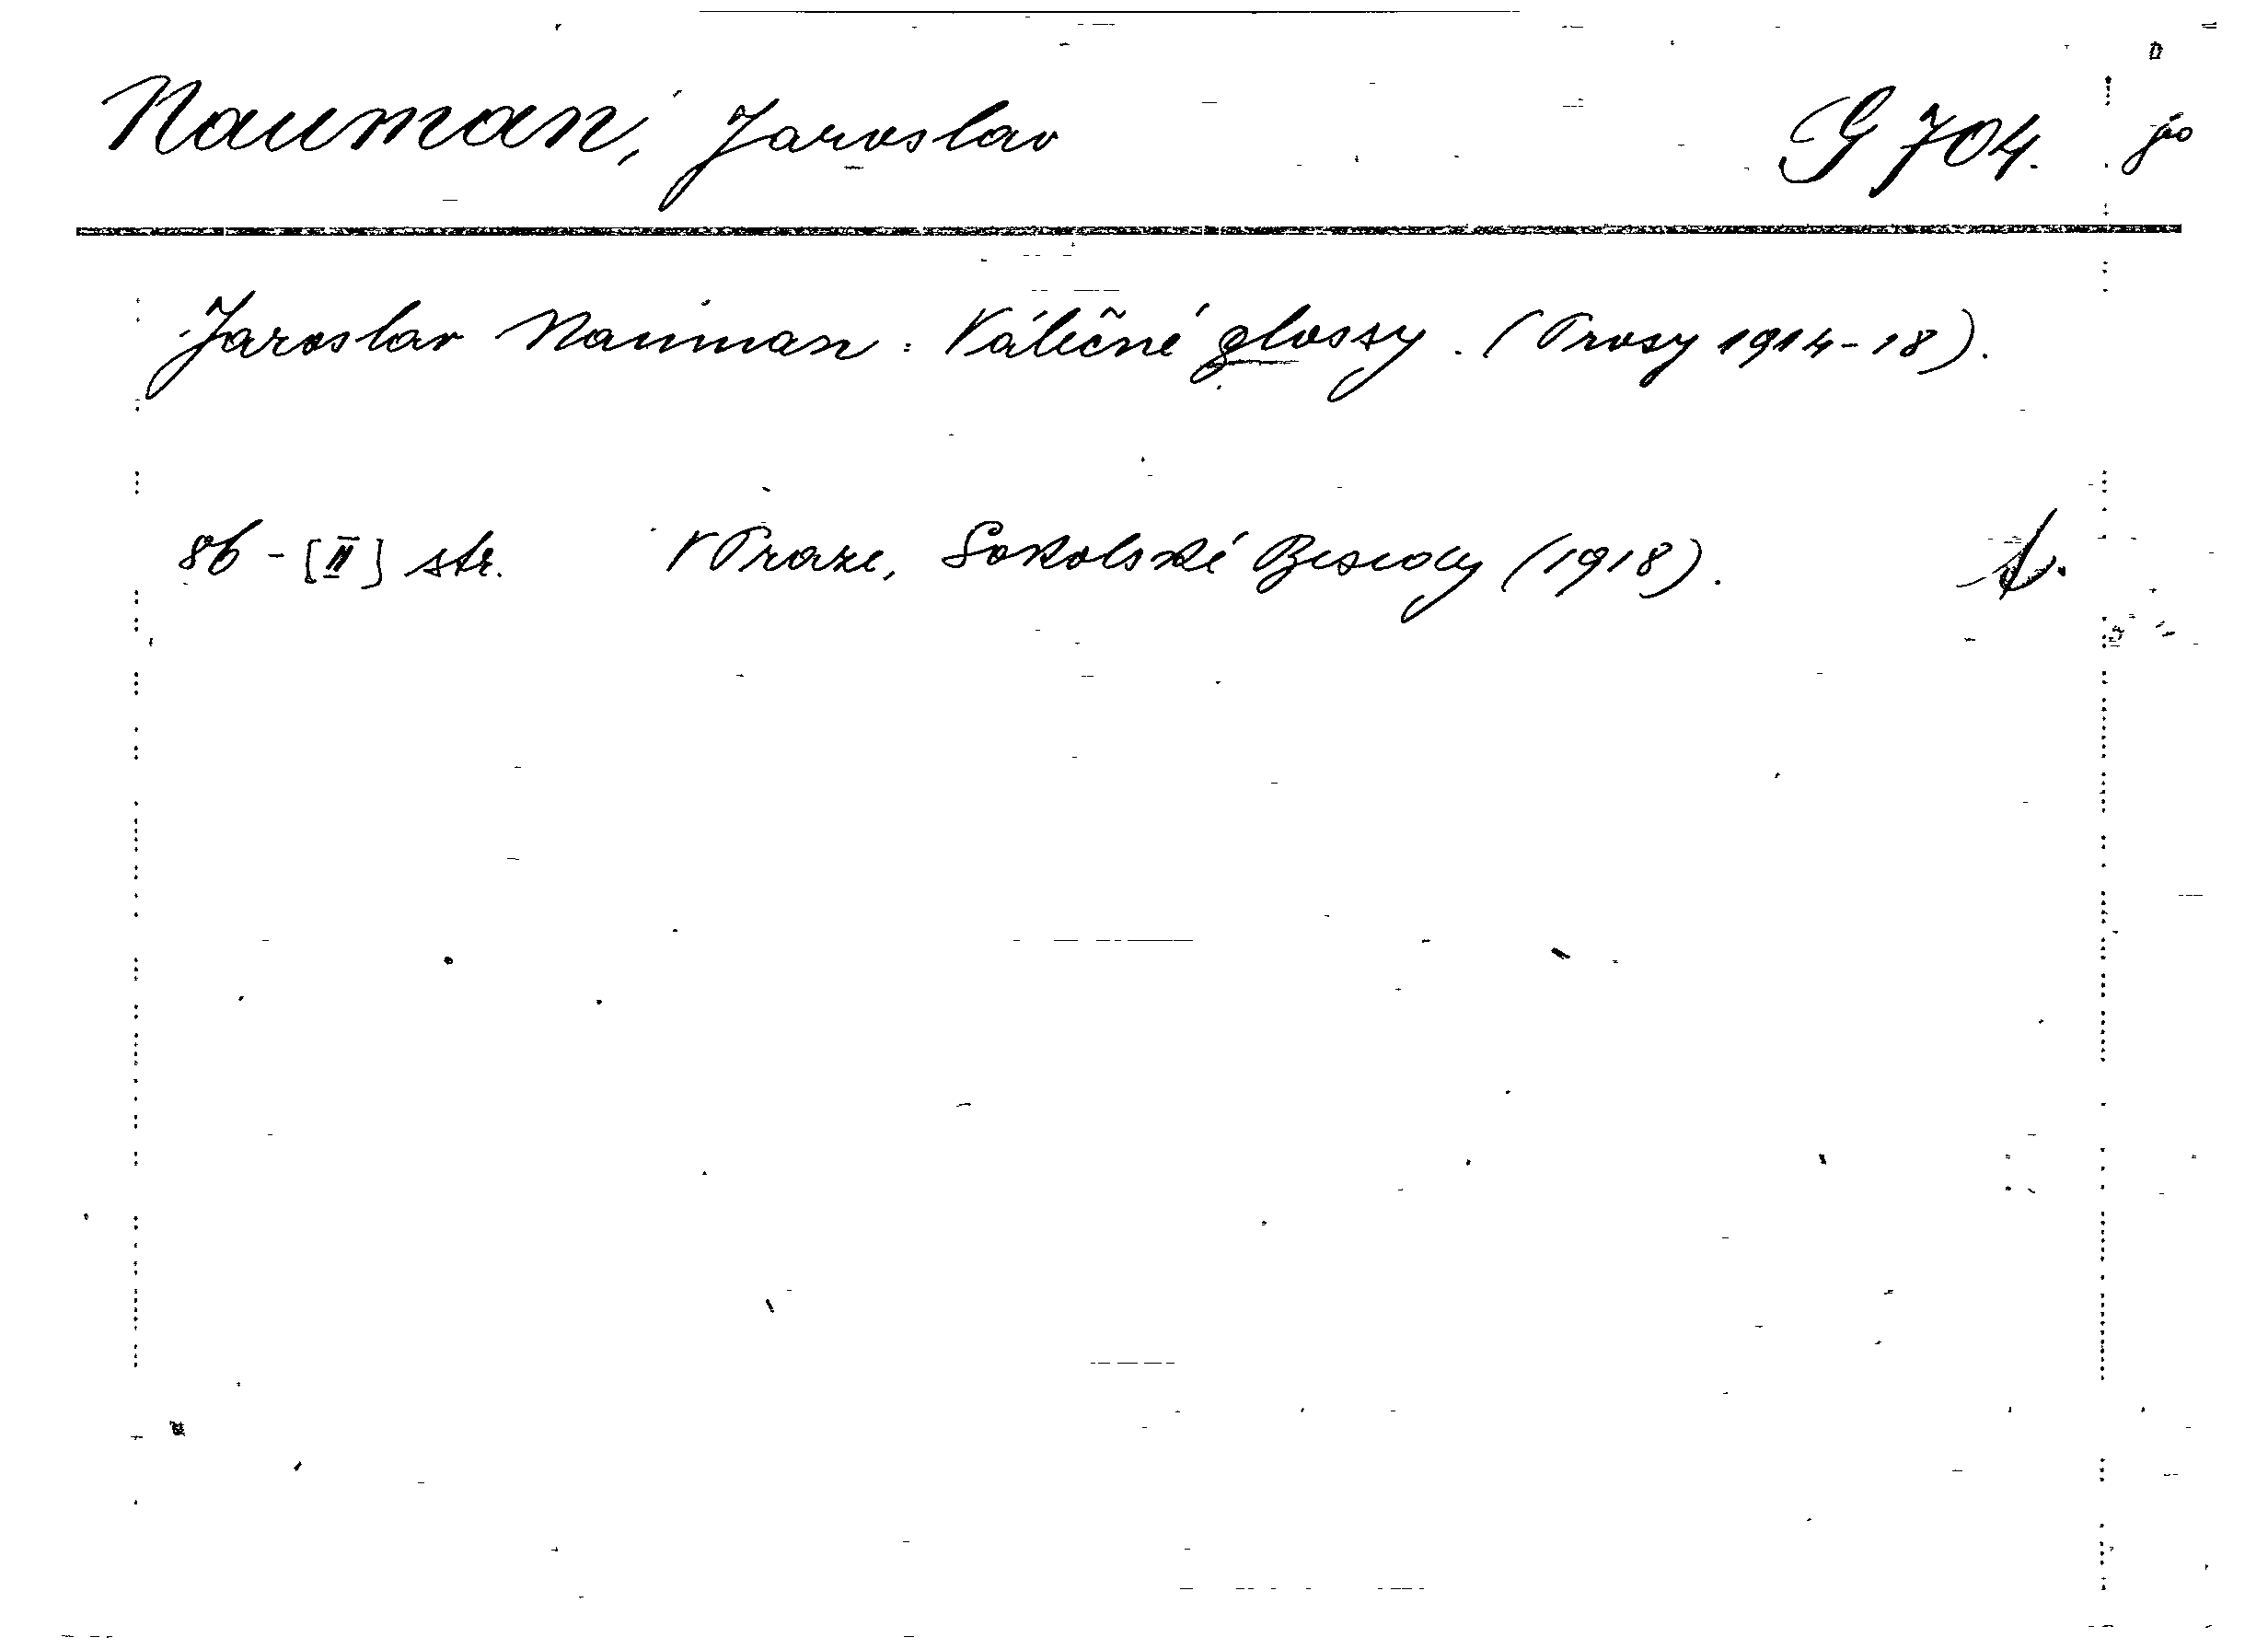 Nauman, Jaroslav G 704.
Jaroslav Nauman: Válečné glossy. (Prosy 1914-18).
86 - [II] str. V Praze, Sokolské Besedy (1918).